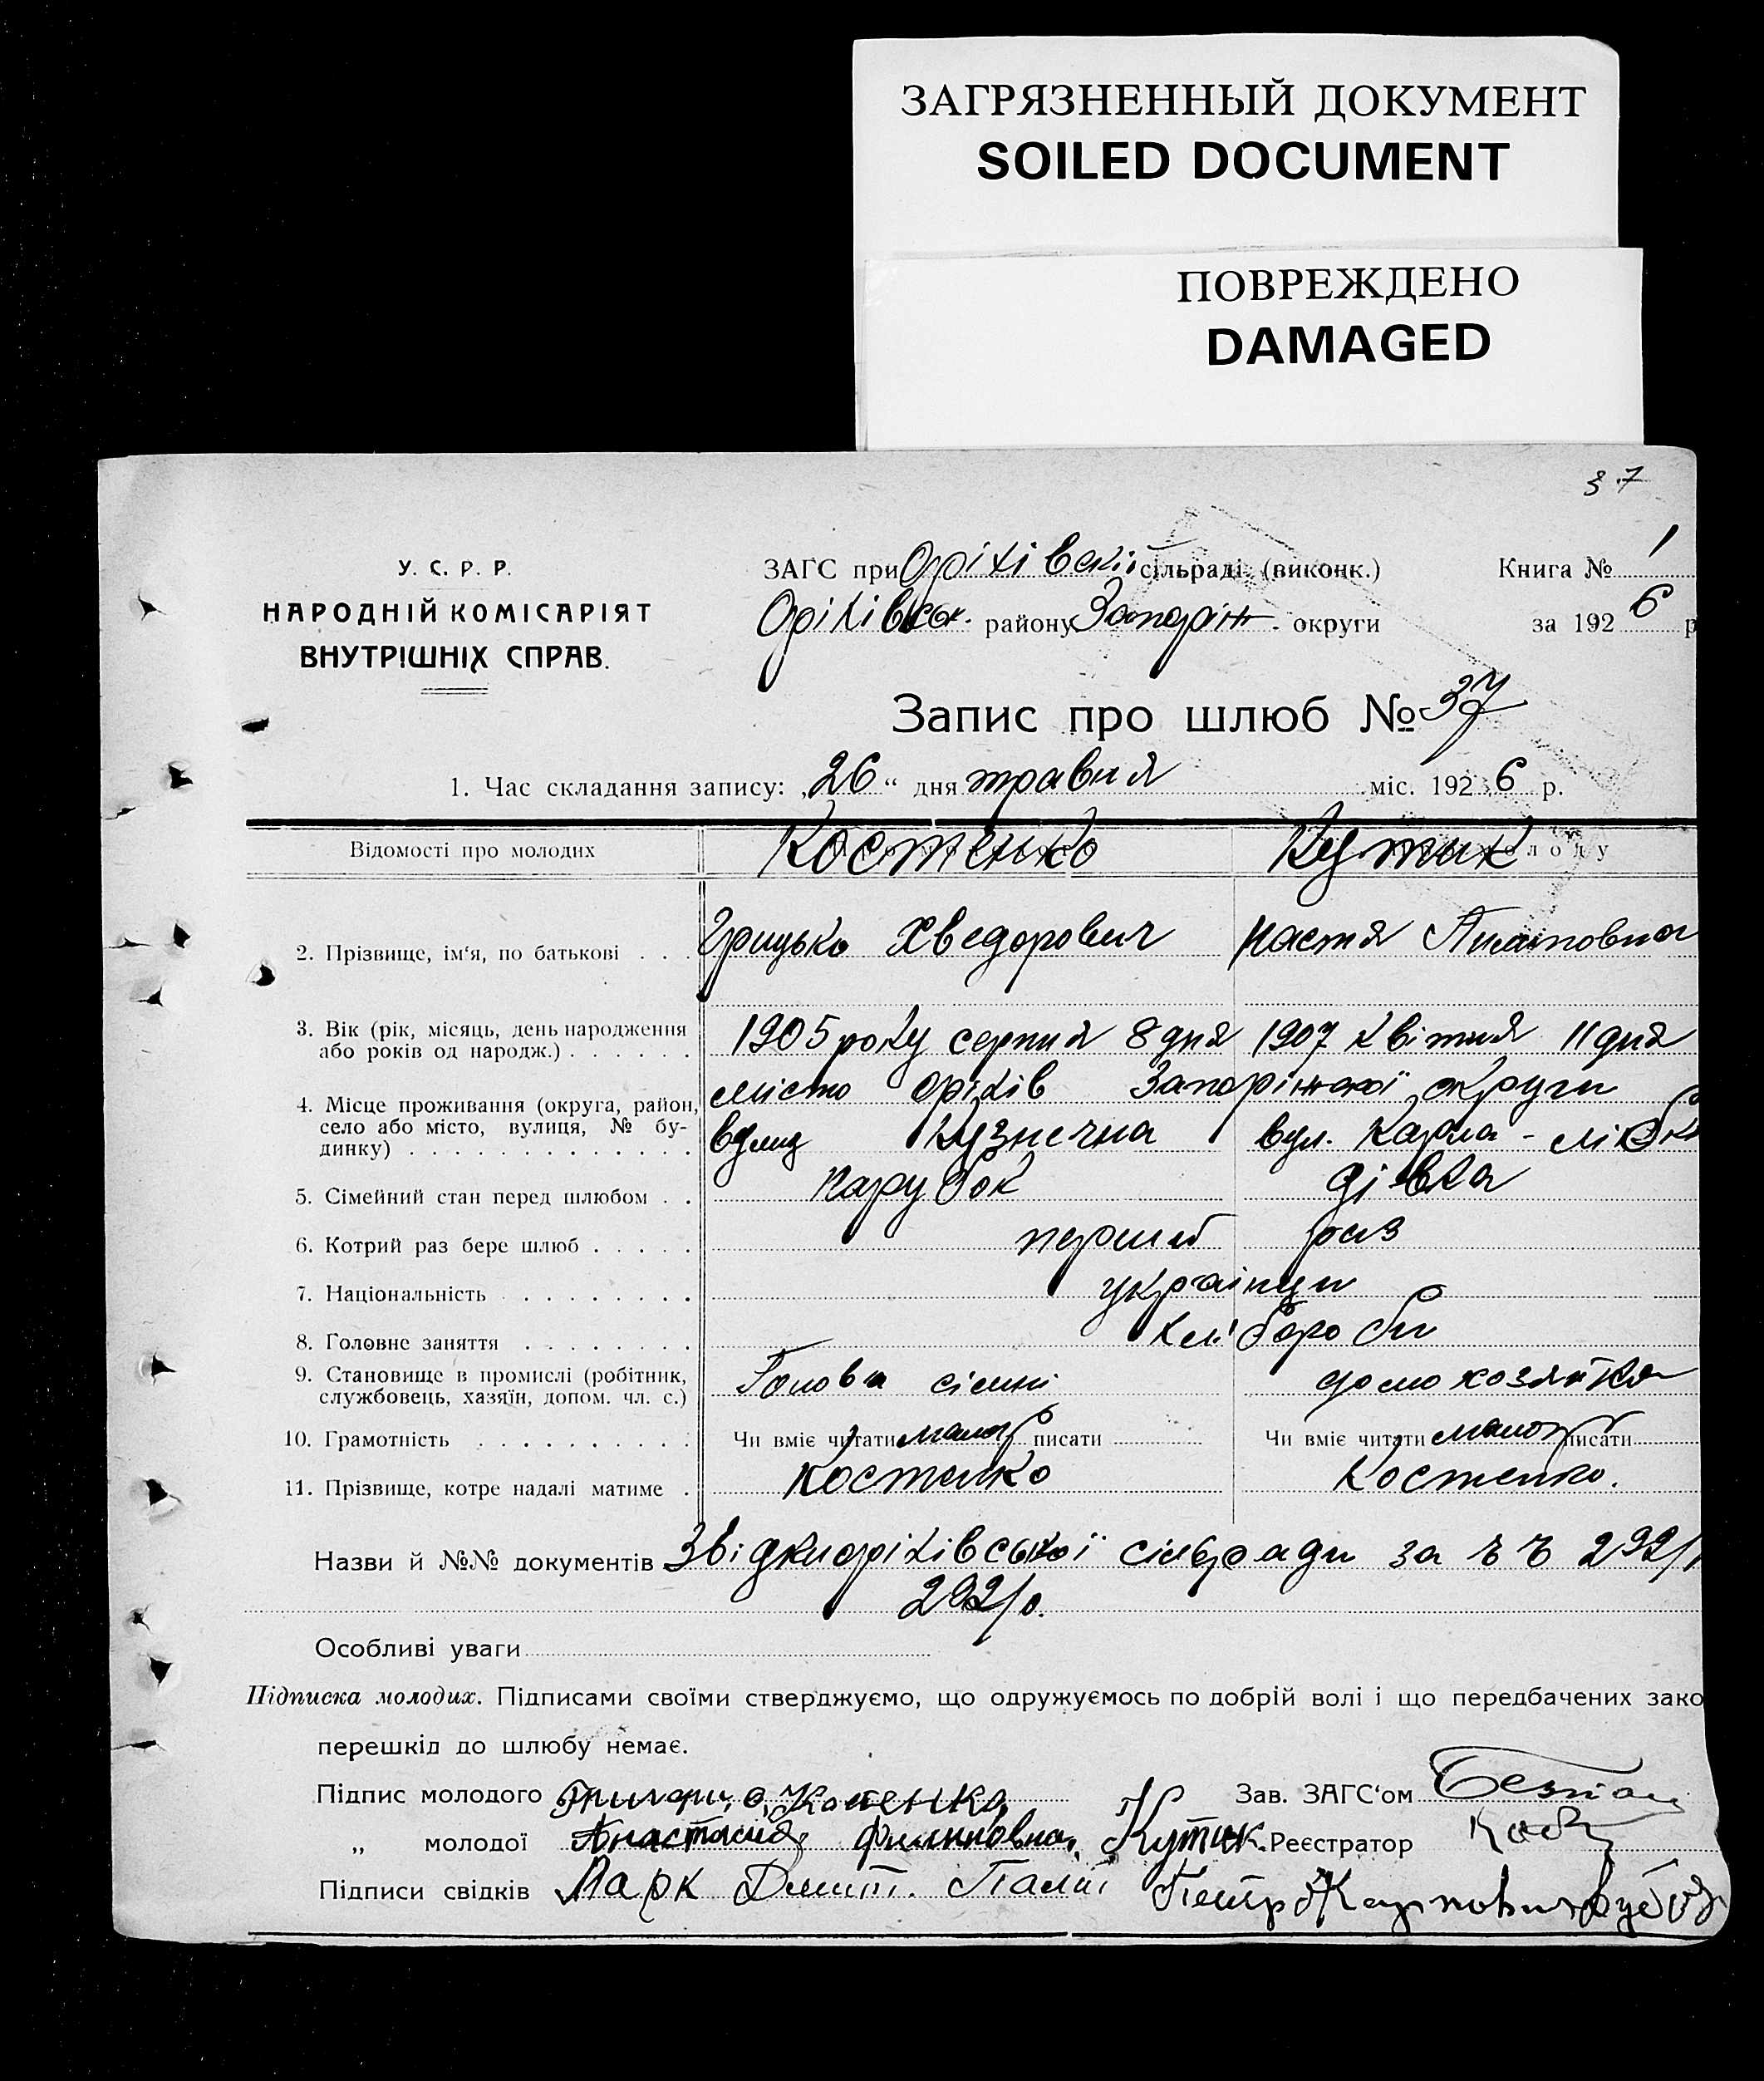 ЗАГРЯЗНЕННЫЙ ДОКУМЕНТ
SOILED DOCUMENT
ПОВРЕЖДЕНО
DAMAGED
37
У. С. Р. Р.
НАРОДНІЙ КОМІСАРІЯТ
ВНУТРІШНІХ СПРАВ.
ЗАГС при Оріхівскій сільраді (виконк.)
Книга № 1
Оріхівськ. району Запоріж. округи
за 1926 р
Запис про шлюб № 37
1. Час складання запису: „26“ дня травня міс. 1926 р.
Відомості про молодих Костенко Кутик
2. Прізвище, ім'я, по батькові . . . Грицько Хведорович Настя
3. Вік (рік, місяць, день народження або років од народж.) . . . . . . 1905 року серпня 8 дня 1907 квітня 11 дня
4. Місце проживання (округа, район, село або місто, вулиця, № будинку) . . . . . . . . . . . . .
місто Оріхів Запоріжської округи
вулиц Кузнечна вул. Карла -
5. Сімейний стан перед шлюбом . . парубок дівка
6. Котрий раз бере шлюб . . . . . перший раз
7. Національність . . . . . . . . українци
8. Головне заняття . . . . . . . . хлібороби
9. Становище в промислі (робітник, службовець, хазяїн, допом. чл. с.) Голова сімні домохозяйка
10. Грамотність . . . . . . . . . . Чи вміє читати малогр писати Чи вміє читати малогр писати
11. Прізвище, котре надалі матиме . Костенко Костенко.
Назви й №№ документів Звідки оріхівської сільради за
292/0.
Особливі уваги
Підписка молодих. Підписами своїми стверджуємо, що одружуємось по добрій волі і що передбачених зако
перешкід до шлюбу немає.
Підпис молодого
Зав. ЗАГС'ом
„ молодої Анастасия Филиповна Кутик.
Реєстратор
Підписи свідків Марк Дмит. Палій Петро Карпович